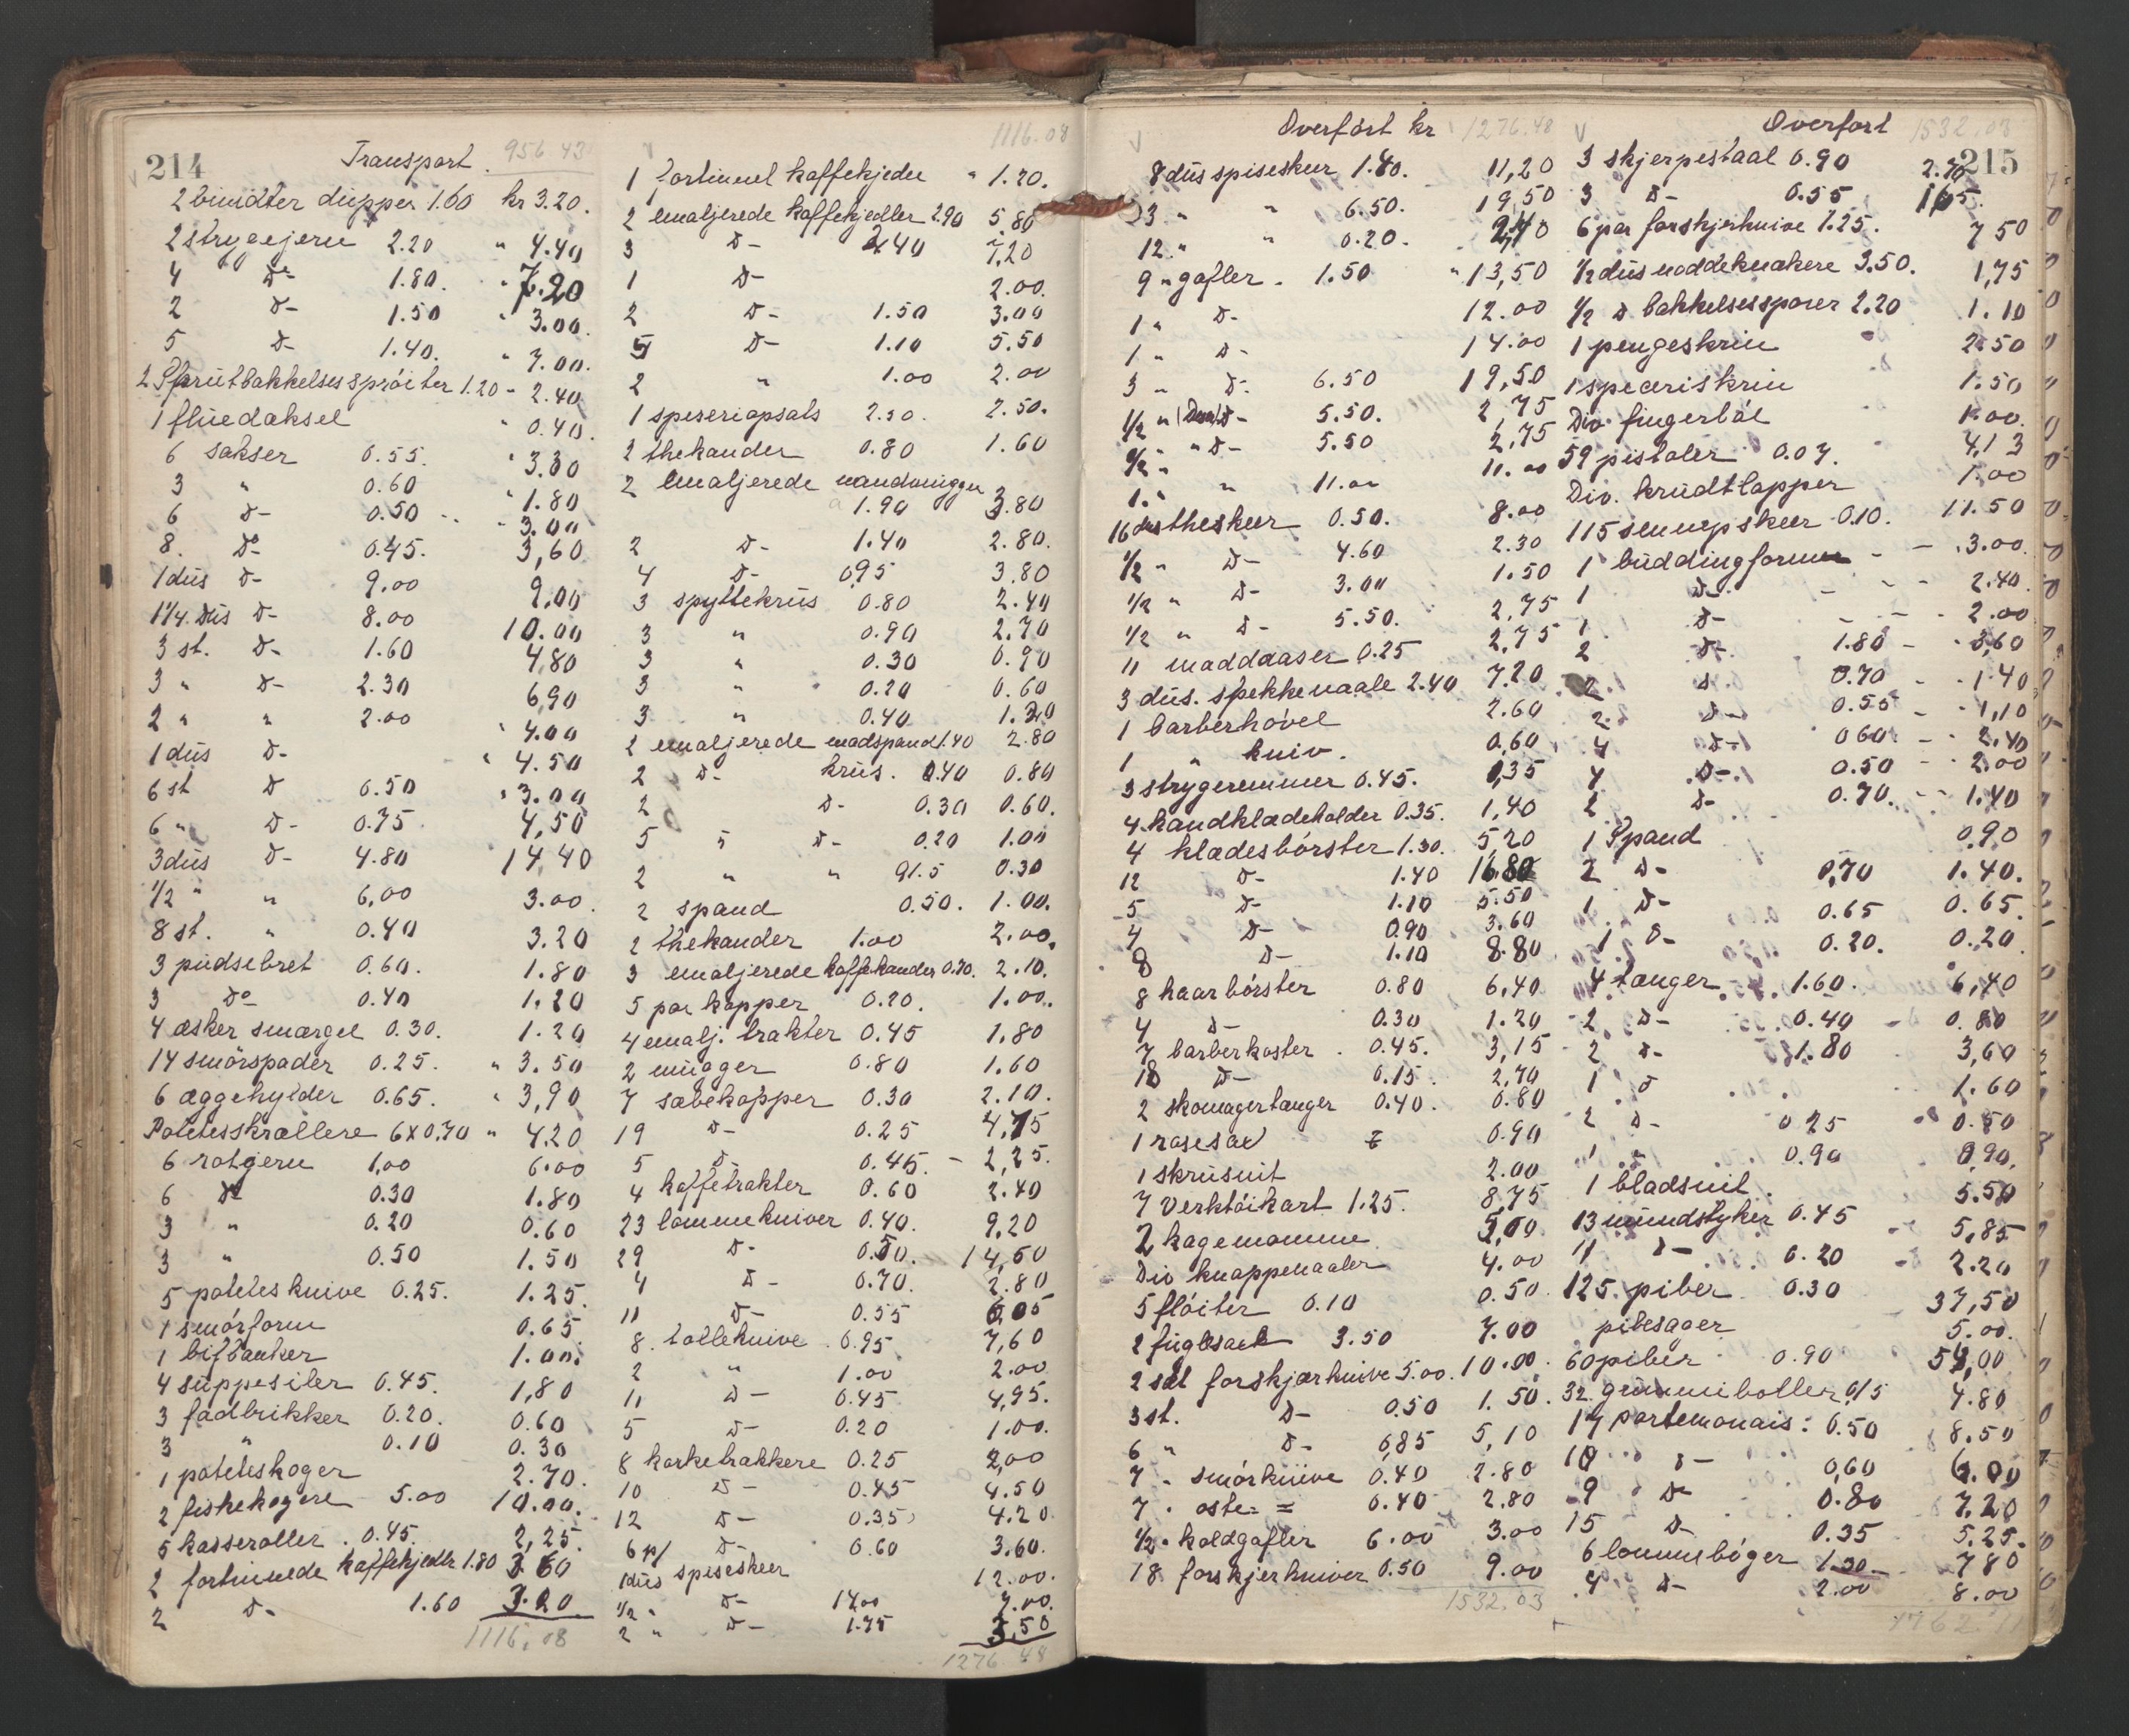 214
Transport 956 43
2 bundter dupper 1.60 kr 3.20.
2 strygejern 2.20 " 4.40
4 Do 1.80. " 7.20
2 D- 1.50 " 3.00.
5 D- 1.40. " 7.00.
2 Sprutbakkelsessprøiter 1.20 - 2.40
1 fluedæksel " 0.40.
6 sakser 0.55. " 3.30
3 " 0.60 " 1.80
6 D- 0.50 " 3.00
8. Do 0.45. 3,60
1 dus D- 9.00 9,00
1 1/4 Dus D- 8.00 10.00
3 st. D- 1.60 4,80
3 " D- 2.30 6,90
2 " " 2.00 " 4.00
1 dus D- " 4.50
6 st D 0.50 " 3.00
6 " D- 0.75 4,50
3 dus D- 4.80 14,40
1/2 " " 6,00 3.00.
8 st. " 0.40 3.20
3 pudsebret 0.60. 1.80
3 Do 0.40 1.20
4 æsker smærgel 0.30. 1.20
14 smørspader 0.25. " 3.50
6 æggehylder 0.65. " 3,90
Potetesskrællere 6x0,70 " 4.20
6 1,00 6.00
6 Do 0.30 1.80
3 " 0.20 0.60
3 " 0.50 1.50
5 poteteskuive 0.25. 1.25.
1 smørform 0.65
1 bifbanker 1.00.
4 suppesiler 0.45. 1,80
3 fadbrikker 0.20. 0.60
3 " 0.10 0.30
1 poteteskoger 2.70.
2 fiskekogere 5.00 10.00.
5 kasseroller. 0.45. 2,25.
2 fortinnede kaffekjedler 1.80 3.60
2 D- 1.60 3.20
1116.08
1116.08
1 fortinnet kaffekjedel " 1.20.
2 emaljerede kaffekjedler 2.90 5.80
3 D- 2.40 7,20
1 D- 2.00.
2 D- 1.50 3.00
5 D- 1.10 5.50
2 " 1.00 2.00
1 speseriopsats 2.50. 2.50.
2 thekander 0.80 1.60
2 emaljerede
1.90 3.80
2 D- 1.40 2.80.
4 D- 0,95 3.80
3 spyttekrus 0.80 2.40
3 " 0.90 2.70
3 " 0.30 0.90
3 " 0.20 0.60
3 " 0.40 1.20
2 emaljerede madspand 1.40 2.80
2 D- krus. 0.40 0.80
2 D- 0.30 0.60.
5 " D- 0.20 1.00
2 " " 0.15 0.30
2 spand 0.50. 1.00.
2 thekander 1.00 2.00.
3 emaljerede kaffekander 0.70. 2.10.
5 par kopper 0.20. 1.00.
4 emalj. trakter 0.45 1.80
2 0.80 1.60
7 sæbekopper 0.30 2.10.
19 D- 0.25 4,75
5 D- 0.45. - 2,25.
4 kaffetrakter 0.60 2.40
23 lommekniver 0.40. 9,20
29 D- 0.50. 14,50
4 D- 0.70. 2.80
11 D- 0.55 6,05
8. tolleknive 0.95 7,60
2 " 1.00 2.00
11 D- 0.45 4,95.
5 D- 0.20 1.00.
8 korketrakkere 0.25 2,00
10 D- 0.45 4.50
12 D- 0.35 4.20
6 p/ D- 0.60 3.60.
1 dus spiseskeer 12.00.
1/2 " D- 14.00 7.00.
2 " D- 1.75 3,50
1276.48
Overført kr 1276.48
8 dus spiseskeer 1.40. 11,20
3 " " 6.50. 19,50
12 " " 0.20. 2,40
9 " gafler. 1.50 " 13,50
1 " D- 12.00
1 " D- 14.00
3 " D- 6.50 19,50
1/2 " D- 5.50. 2,75
1/2 " " D- 5.50 2,75
1 " " 11.00 11.00
16 dus theskeer 0.50. 8.00
1/2 " D- 4.60 2.30
1/2 " D- 3.00 1.50
1/2 " D- 5.50. 2,75
11 maddaaser 0.25 2,75
3 dus. spekkenaale 2.40 7.20
1 barberhøvel 2.60
1 " kniv. 0,60
3 strygeremmer 0.45. 1,35
4 haandklædeholder 0.35. 1,40
4 klædesbørster 1.30. 5,20
12 D- 1.40 16.80
5 D- 1.10 5.50
4 D- 0.90 3.60
8 D- 1.10 8.80
8 haarbørster 0.80 6,40
4 D- 0.30 1.20
7 barberkoster. 0.45. 3,15
18 D- 0.15. 2,70
2 skomagertænger 0.40. 0.80
1 rosesax 0.90
1 skrusnit 2.00
7 Verktøikort 1.25. 8,75
2 kagemomme 5,00
Div knappenaaler 4.00
5 fløiter 0.10 0.50.
2 3.50 7.00
2 sæt forskjærknive 5.00. 10.00.
3 st. D- 0.50 1.50.
6 " D- 0,85 5,10
7 " smørknive 0.40 2.80
7 " oste- = 0.40 2.80
1/2 " koldgafler 6.00 3.00
18 forskjerkniver 0.50 9.00
1532.03
Overført 1532.03
215
3 skjerpestaal 0.90 2.70
3 D- 0.55 1,65.
6 par forskjerknive 1.25. 7 50
1/2 dus nøddeknækere 3.50. 1,75
1/2 D bakkelsessporer 2.20 1.10
1 pengeskrin 2.50
1 speceriskrin 1.50
Div fingerbøl 1.00.
59 pistoler 0.07. 4,13
Div. krudtlapper 1.00
115 sennepskeer 0.10. 11.50
1 buddingform - - 3.00.
1 D- - - 2.40.
1 D- - - 2.00
2 D- 1.80 - 3,60
2 D 0.70 - 1.40
2 D- 0.55 - 1,10
4 D- 0 60 - 2.40
4 D- 0.50 - 2.00
2 D- 0.70. - 1.40
1 Spand 0.90
2 D- 0,70 1.40.
1 D- 0.65 0.65.
1 D- 0.20. 0.20
4 tænger 1.60. 6,40
2 D- 0.40 - 0.80
2 D- 1.80 3,60
1 D 1.60
2 D- 0 25 0.50
1 " 0.90 0,90.
1 bladsnit. 5.50
13 mundstyker 0.45 5,85
11 D- 0.20 2.20
125 piber 0.30 37,50
pibesager 5.00.
60 piber 0.90 54,00
32 gummiboller 0/5 4.80
17 portemonais: 0.50 8.50
10 D- 0,60 6.00
9 D- 0.80 7.20
15 D- 0.35 5.25.
6 lommebøger 1.30 7 80
4 D- 2.00 8.00
1762.11